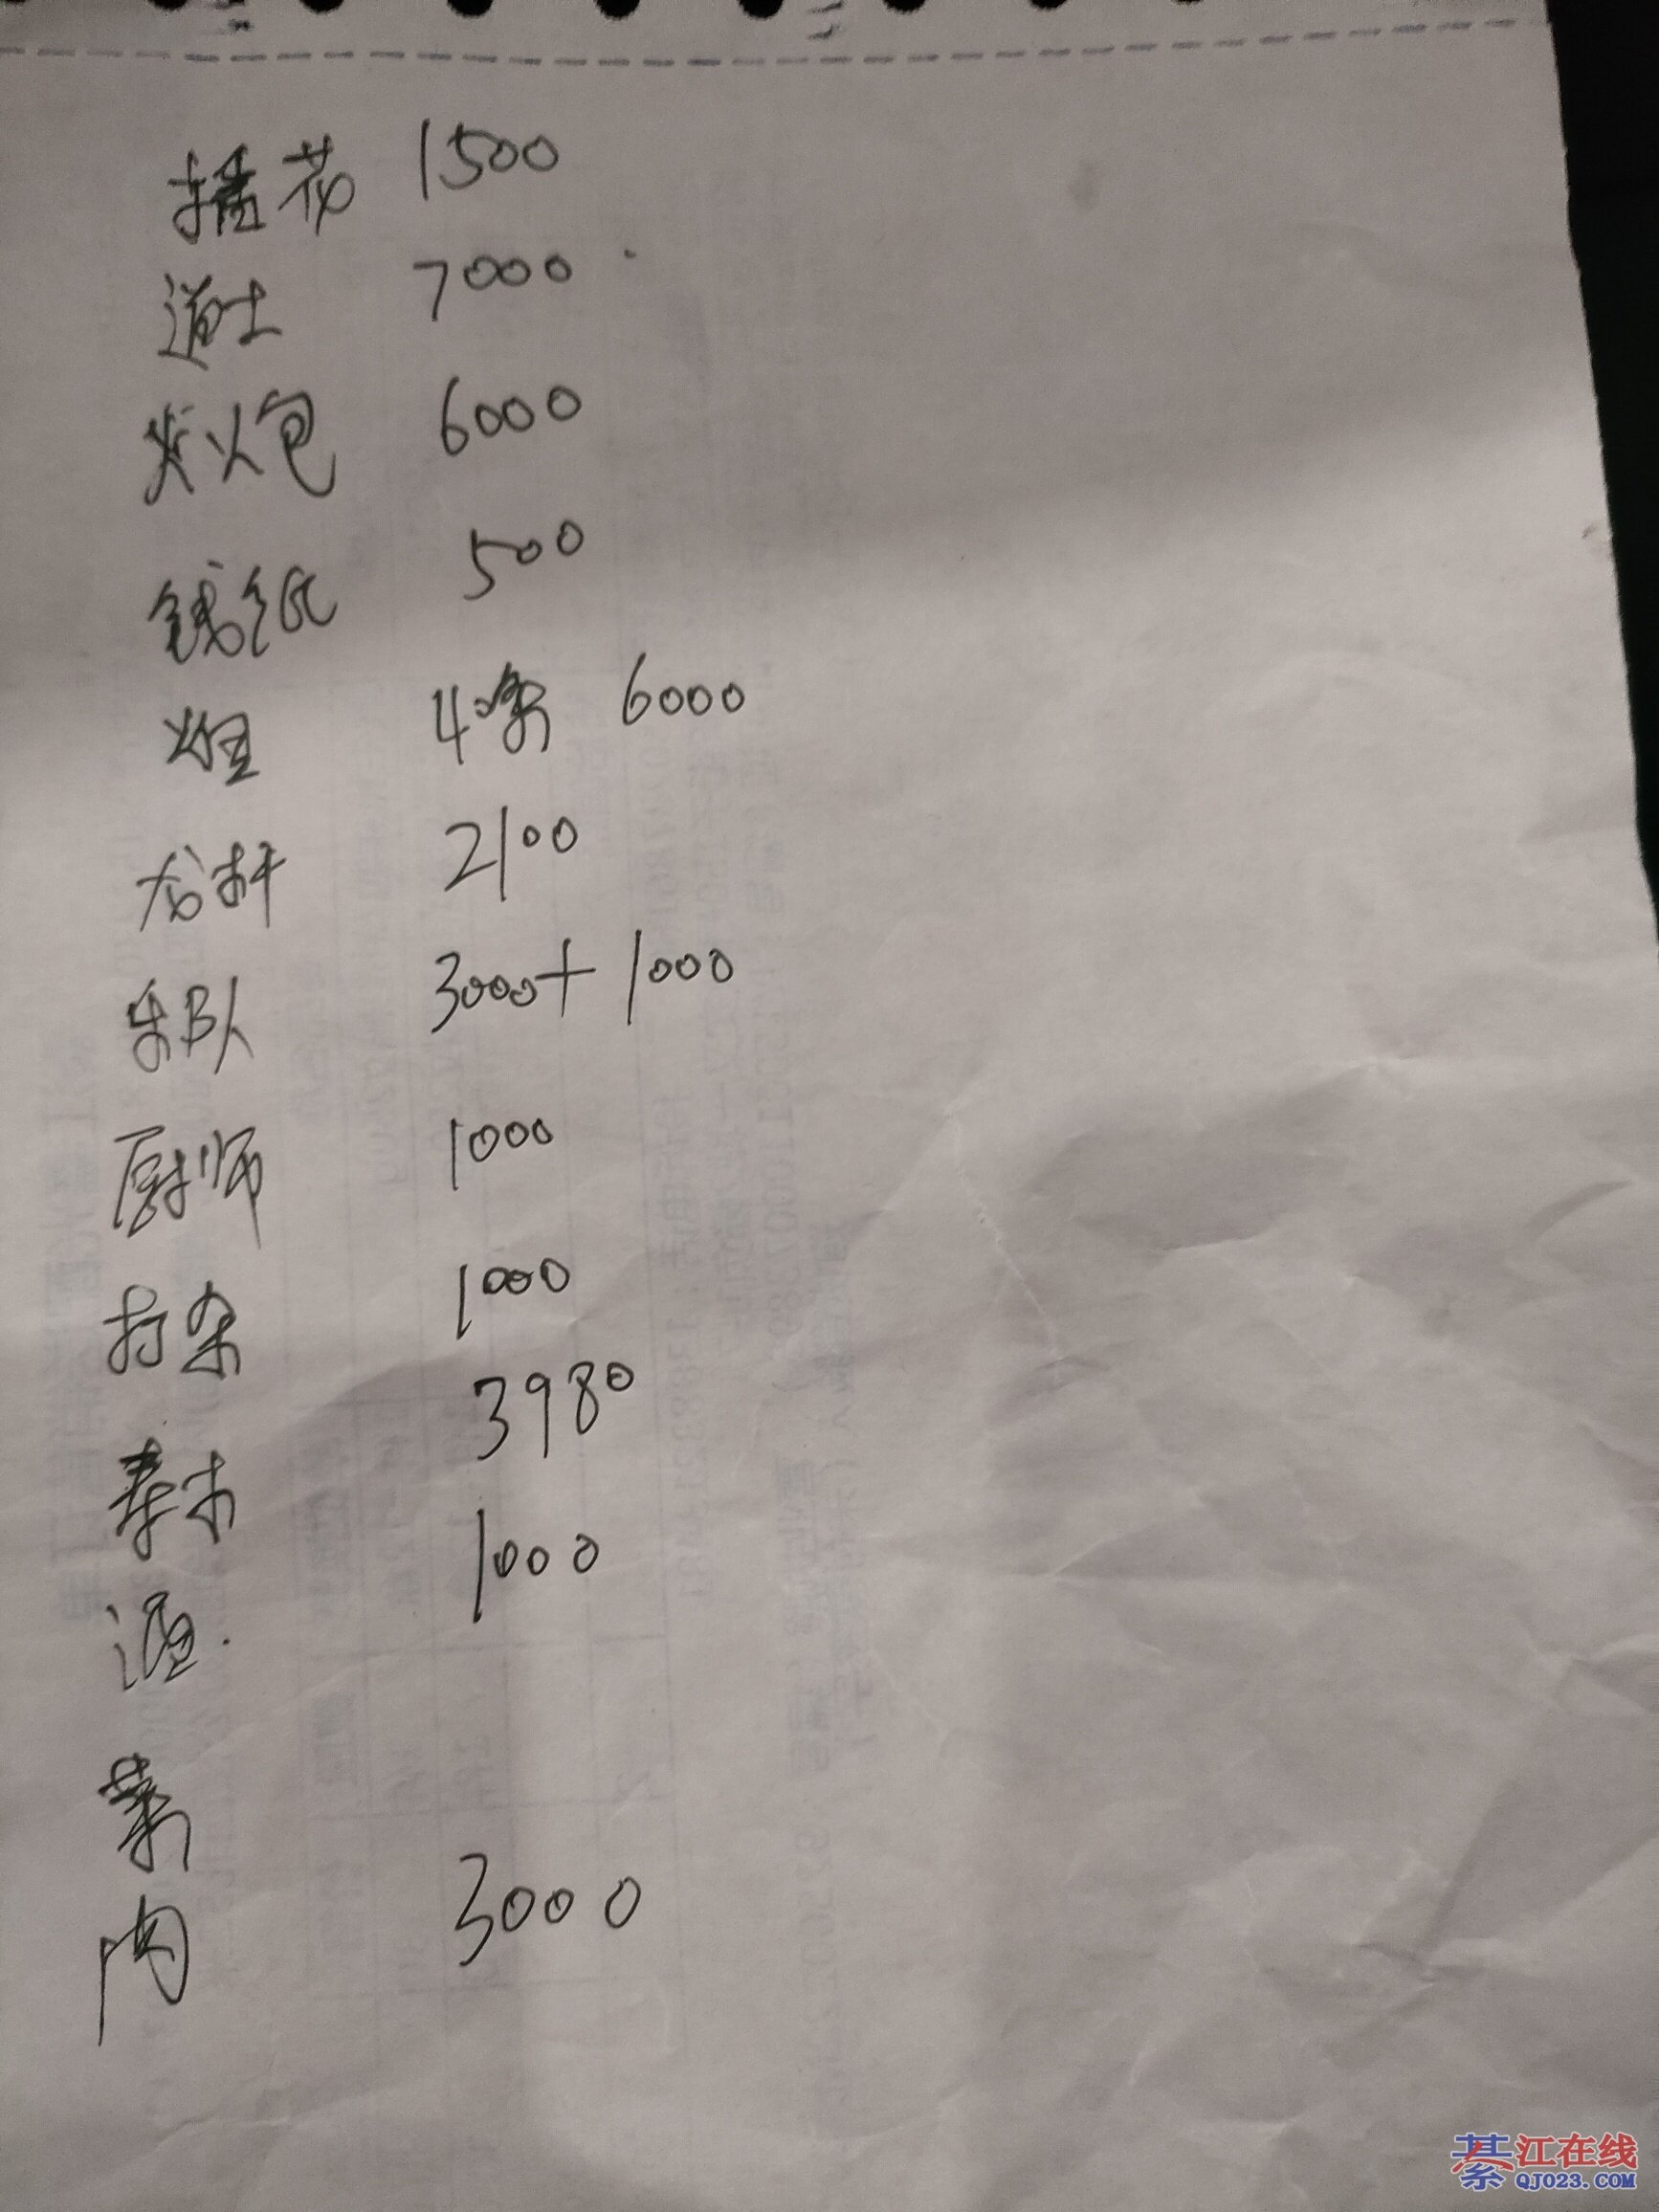 插花 1500
道士 7000
火炮 6000
钱纸 500
烟 4条 6000
龙杆 2100
乐队 3000+1000
厨师 1000
打杂 1000
寿木 3980
酒 1000
菜
肉 3000
綦江在线
QJ023.COM